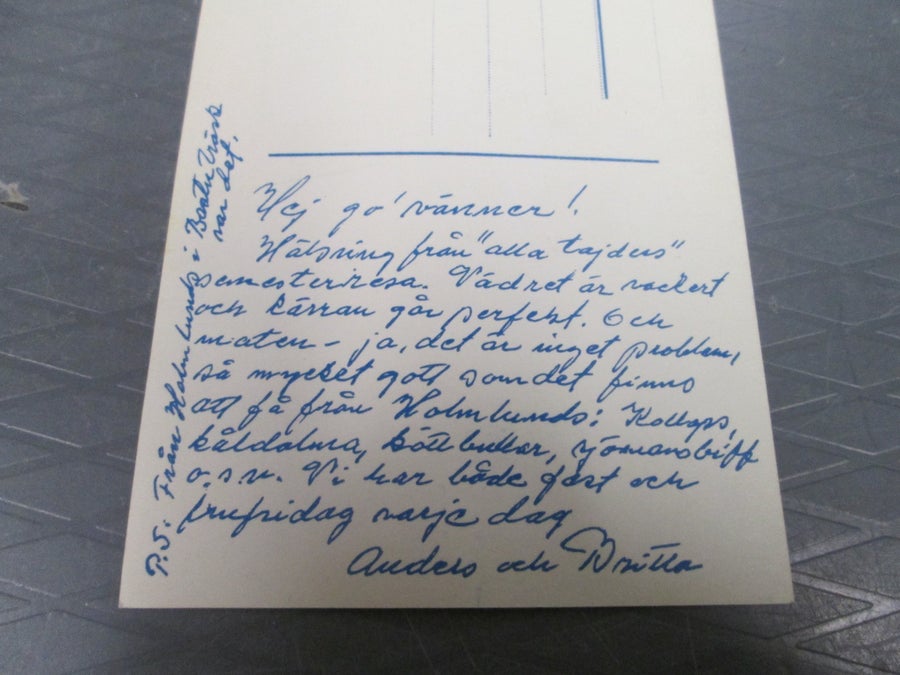 Hej go' vänner!
Hälsning från "alla tajders"
semesterresa. Vädret är vackert
och kärran går perfekt. Och
maten - ja, det är inget problem,
så mycket gott som det finns
att få från Holmlunds: Kallops,
kåldolma, köttbullar, sjömansbiff
o.s.v. Vi har både fest och
frufridag varje dag
Anders och Britta
P.S. Från Holmlunds i Bastuträsk
var det.